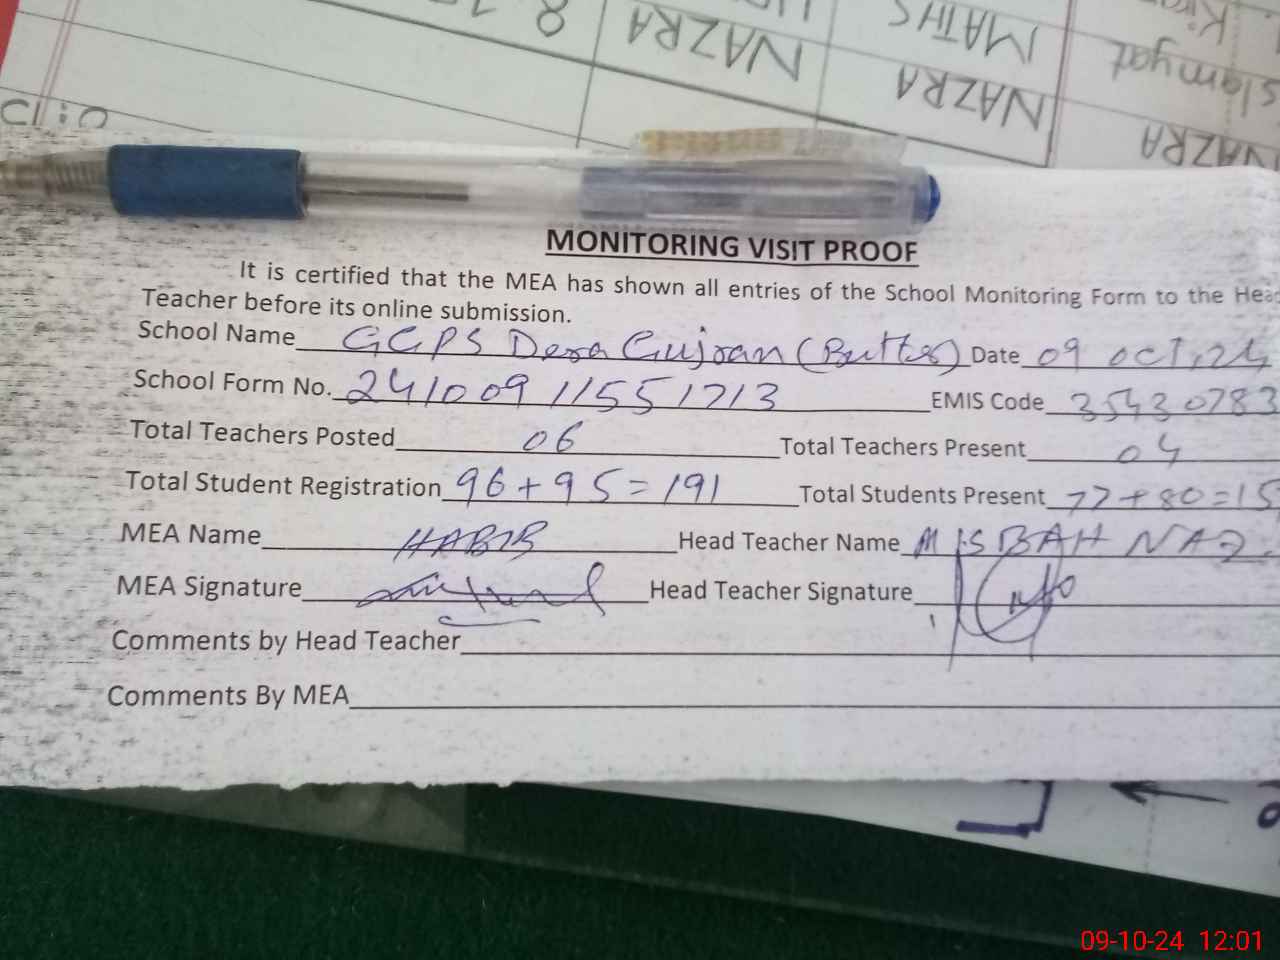 MATHS
NAZRA
NAZRA
slamyat
NAZRA
MONITORING VISIT PROOF
It is certified that the MEA has shown all entries of the School Monitoring Form to the Hea
Teacher before its online submission.
School Name GGPS Dera Gujran (Butter) Date 09 Oct, 24
School Form No. 241009 11551713 EMIS Code 35430783
Total Teachers Posted 06 Total Teachers Present 04
Total Student Registration 96+95=191 Total Students Present 77+80=15
MEA Name HABIB Head Teacher Name MISBAH NAZ
MEA Signature Head Teacher Signature
Comments by Head Teacher
Comments By MEA
09-10-24 12:01